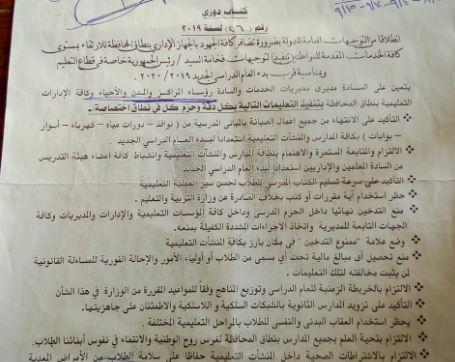 كتاب دوري
رقم ( ٢٠٦ ) لسنة ٢٠١٩
انطلاقا من التوجيهات العامة للدولة بضرورة تضافر كافة الجهود بالجهاز الإداري بنطاق المحافظة للارتقاء بمستوى
كافة الخدمات المقدمة للمواطنين تنفيذ لتوجيهات فخامة السيد / رئيس الجمهورية خاصة في قطاع التعليم
وبمناسبة قرب بدء العام الدراسي الجديد ٢٠١٩ / ٢٠٢٠
يتعين على السادة مديري مديريات الخدمات والسادة رؤساء المراكز والمدن والأحياء وكافة الإدارات
التعليمية بنطاق المحافظة بتنفيذ التعليمات التالية بكل دقة وحزم كل في نطاق اختصاصه .
التأكيد على الانتهاء من جميع أعمال الصيانة بالمباني المدرسية من ( نوافذ - دورات مياه - كهرباء - أسوار
- بوابات ) بكافة المدارس والمنشآت التعليمية استعدادا لبدء العام الدراسي الجديد .
الالتزام والمتابعة المستمرة والاهتمام بنظافة المدارس والمنشآت التعليمية وانضباط كافة اعضاء هيئة التدريس
من السادة المعلمين والإداريين استعدادا لبدء العام الدراسي الجديد
التأكيد على سرعة تسليم الكتاب المدرسي للطلاب لحسن سير العملية التعليمية
حظر استخدام أية مقررات أو كتب بخلاف الصادرة عن وزارة التربية والتعليم .
منع التدخين نهائيا داخل الحرم المدرسي وداخل كافة المؤسسات التعليمية والإدارات والمديريات وكافة
الجهات التابعة للمديرية واتخاذ الاجراءات المشددة الكفيلة بمنعه.
وضع علامة "ممنوع التدخين" في مكان بارز بكافة المنشآت التعليمية
منع تحصيل أى مبالغ مالية تحت أي مسمى من الطلاب أو أولياء الأمور والإحالة الفورية للمساءلة القانونية
لمن يثبت مخالفته لتلك التعليمات .
الالتزام بالخريطة الزمنية للعام الدراسي وتوزيع المناهج وفقا للمواعيد المقررة من الوزارة في هذا الشأن
التأكيد على تزويد المدارس الثانوية بالشبكات السلكية و اللاسلكية والاطمئنان على جاهزيتها.
يحظر استخدام العقاب البدني والنفسي للطلاب بالمراحل التعليمية المختلفة .
الالتزام بتحية العلم بجميع المدارس بنطاق المحافظة لغرس روح الوطنية والانتماء في نفوس أبنائنا الطلاب.
الالتزام بالاشتراطات الصحية داخل المنشآت التعليمية حفاظا على سلامة الطلاب من الأمراض المعدية